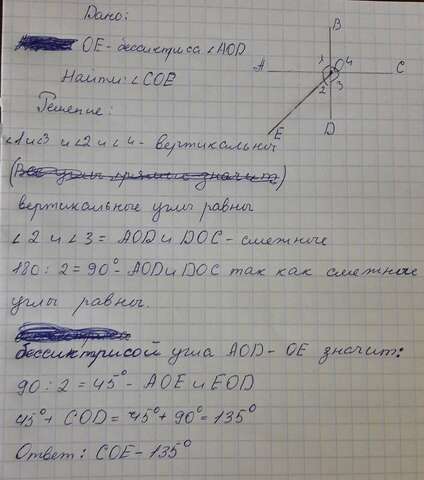 Дано:
OE-бессиктриса ∠AOD
Найти: ∠COE
Решение:
B
1 O 4
A C
2 3
E
D
∠1и3 и ∠2 и ∠4- вертикальны
вертикальные углы равны
∠2 и ∠3 = AOD и DOC - смежные
180 : 2 = 90° - AOD и DOC так как смежные
углы равны.
бессиктрисой угла AOD - OE значит:
90 : 2 = 45° - AOE и EOD
45° + COD = 45° + 90° = 135°
Ответ: COE - 135°